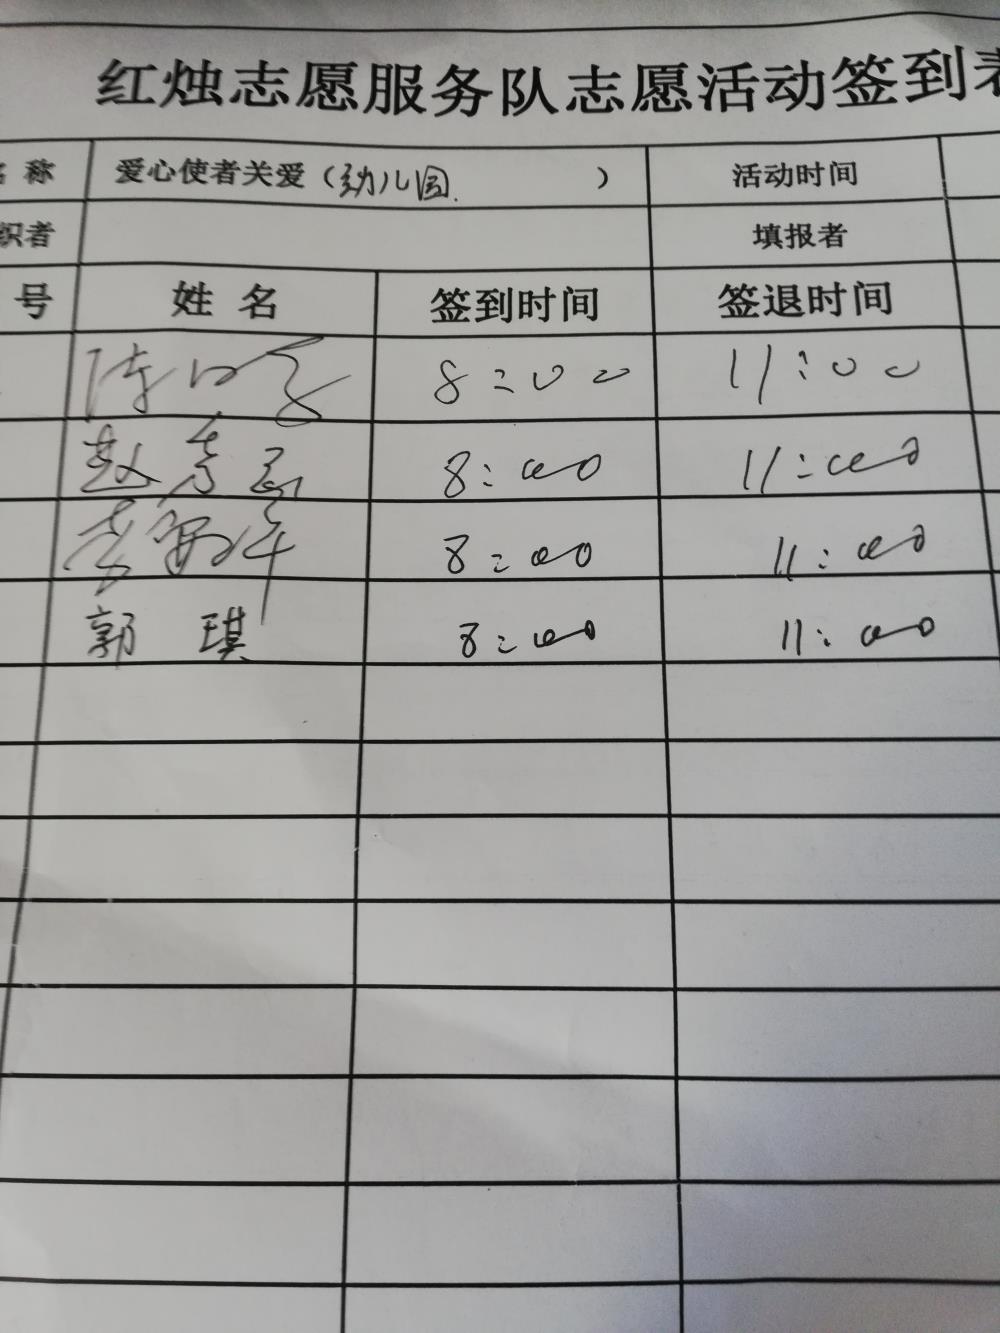 红烛志愿服务队志愿活动签到表
名 称 爱心使者关爱（幼儿园 ） 活动时间
织者 填报者
号 姓 名 签到时间 签退时间
陈 8:00 11:00
赵 8:00 11:00
李 8:00 11:00
郭 琪 8:00 11:00